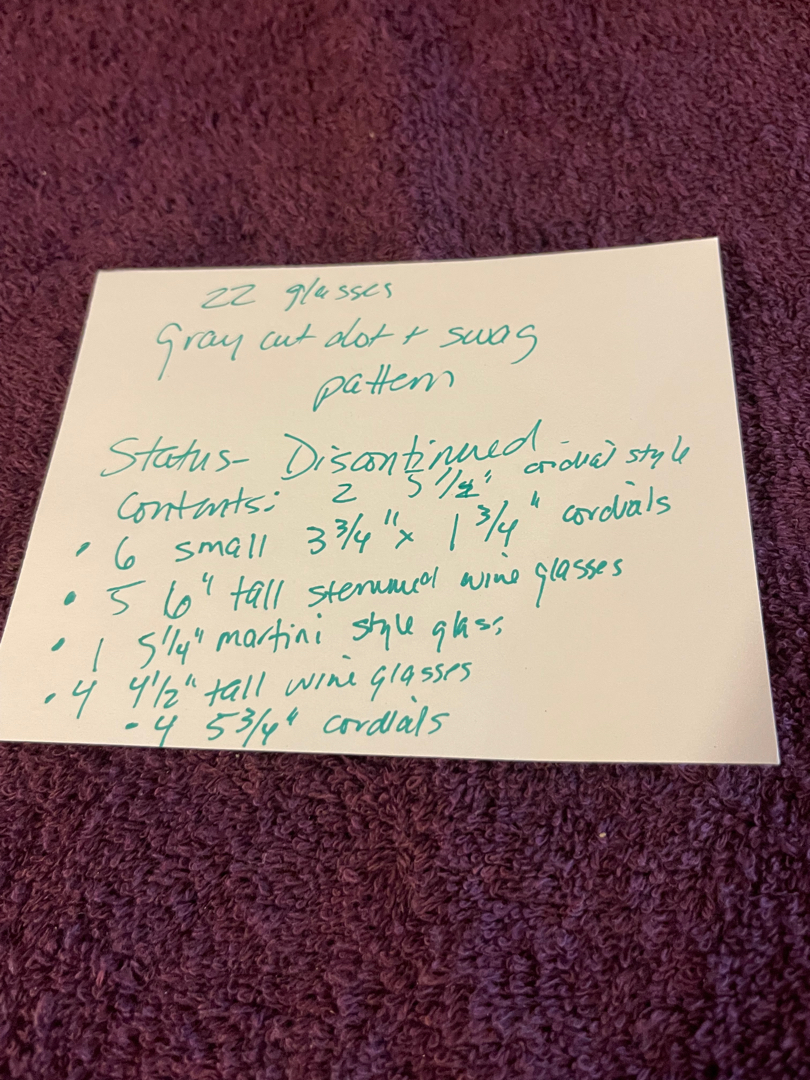 22 glasses
Gray cut dot + swag
pattern
Status- Discontinued
Contents: 2 5 1/2" cordial style
• 6 small 3 3/4" x 1 3/4" cordials
• 5 6" tall stemmed wine glasses
• 1 5 1/4" martini style glass
• 4 4 1/2" tall wine glasses
• 4 5 3/4" cordials